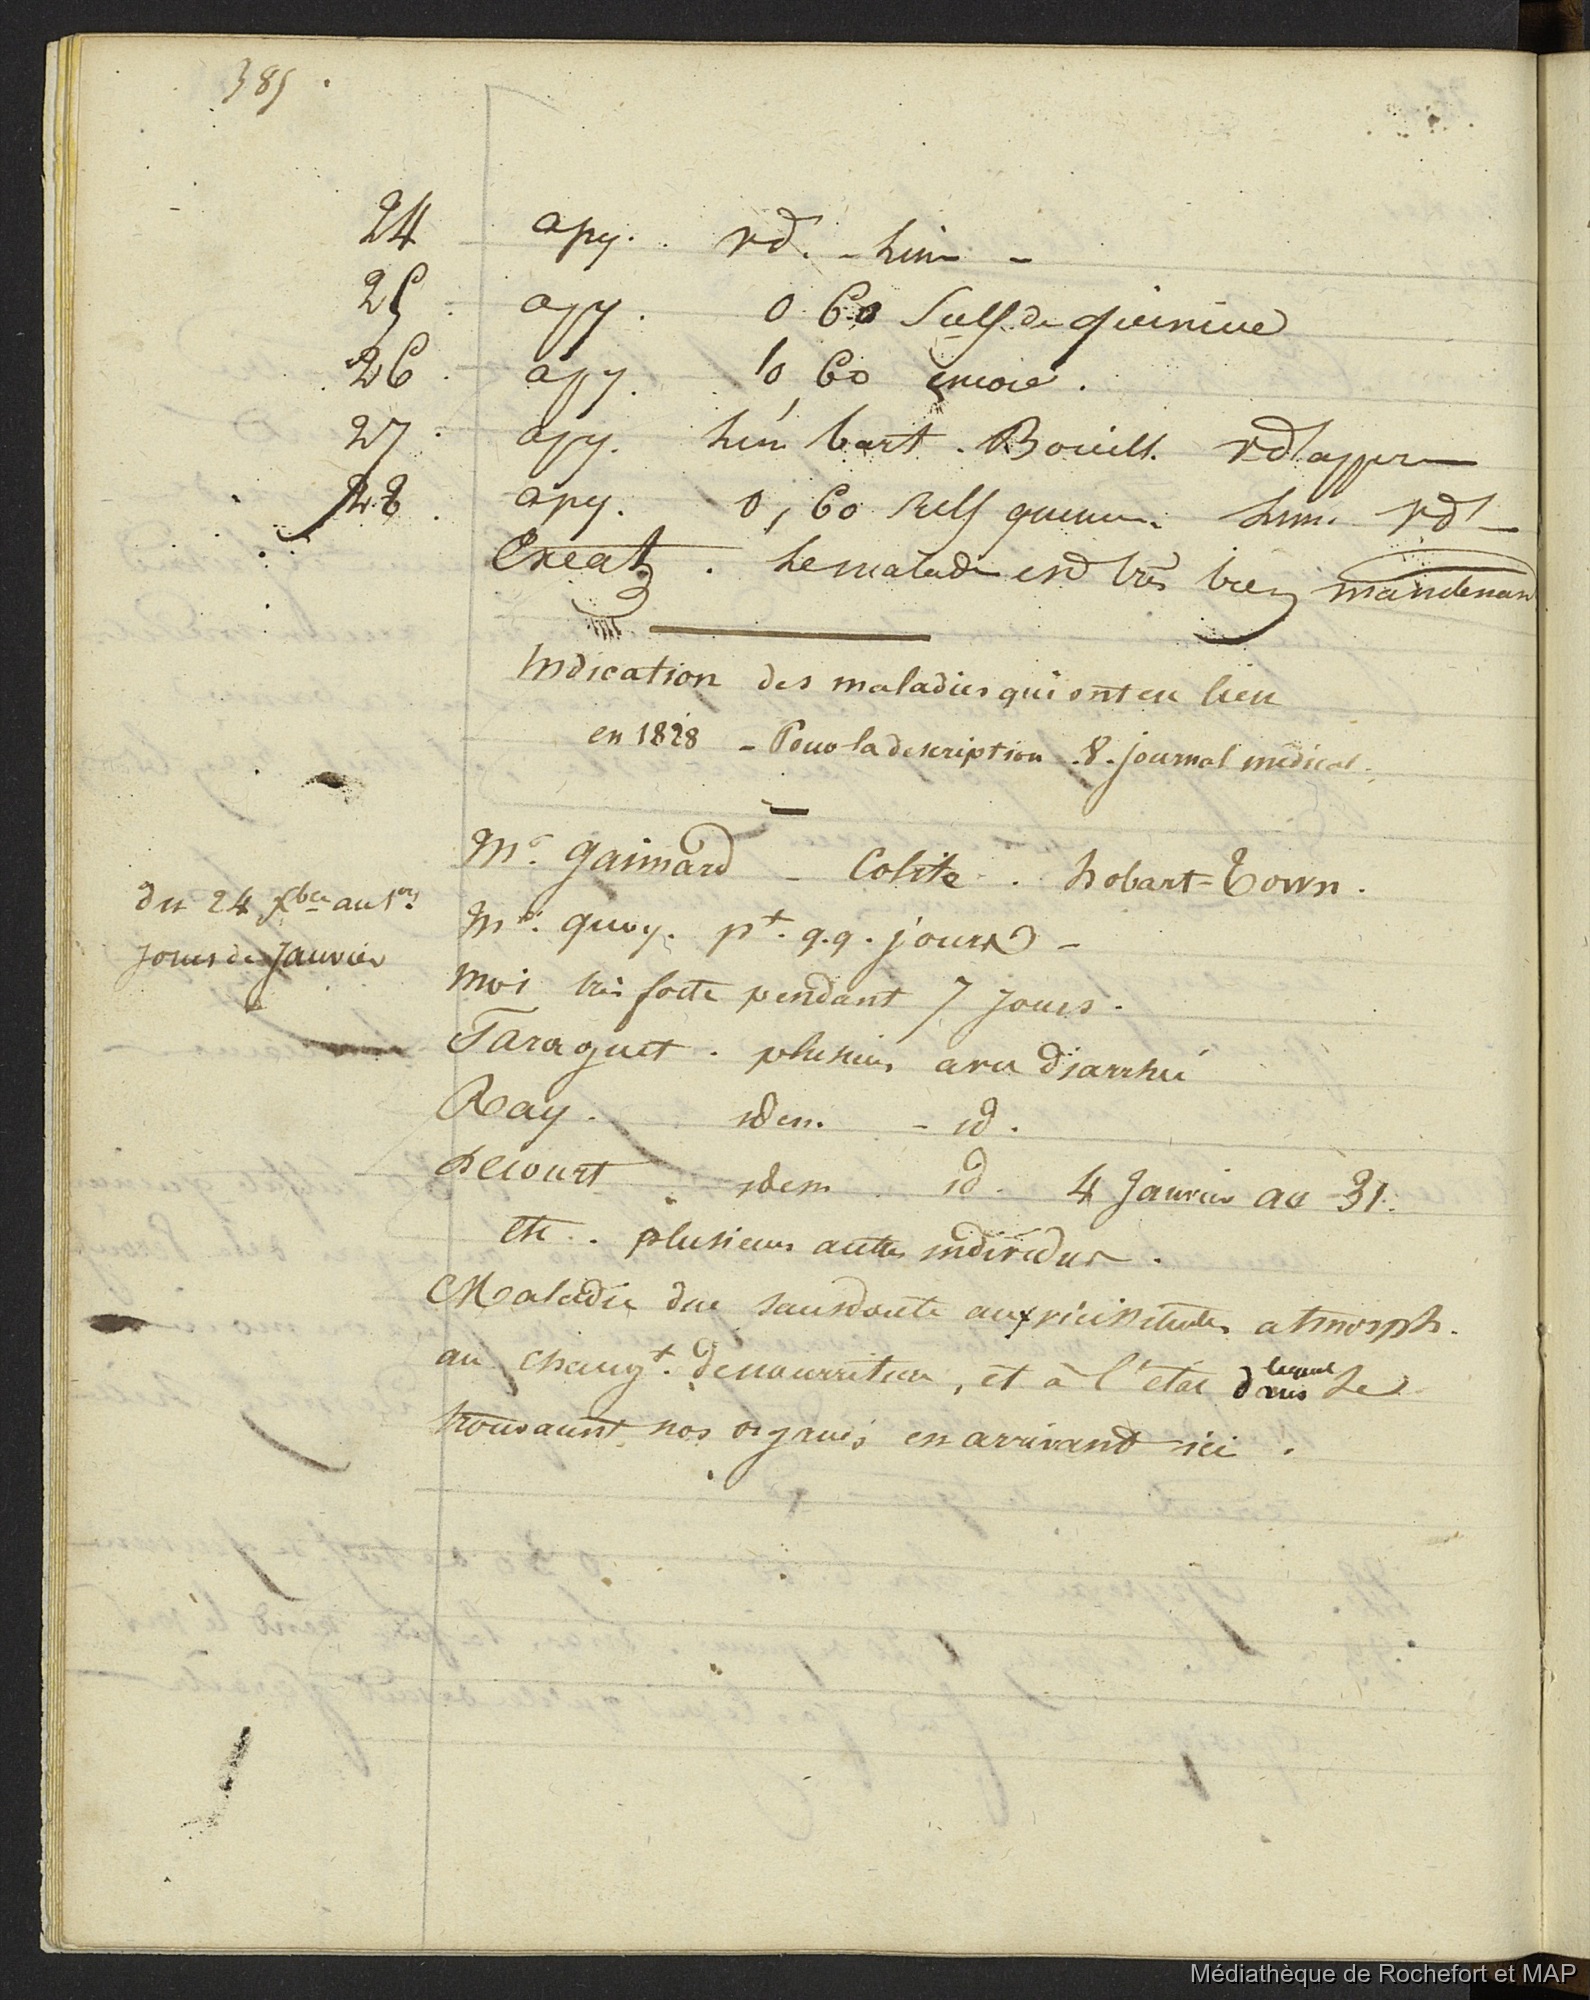 385.
24 apy. rd. - lim -
25 apy. 0 60 Sulf. de quinine
26 apy. 0, 60 encore.
27 apy. lim tart. Bouill. rd
28 apy. 0, 60 sulf quinine lim. rd
Exeat. Le malade est très bien maintenant
Indication des maladies qui ont eu lieu
en 1828 - Pour la description. V. journal médical.
Mr. Gaimard - Colite. hobart-Town.
du 24 Xbre au 1ers
jours de Janvier
Mr. quoy. pt. q.q. jours -
moi très forte pendant 7 jours.
Faraguet. plusieurs avec diarrhée
Ray. idem. - id.
Lecourt. idem id. 4 Janvier au 31.
etc.. plusieurs autres individus.
Maladie due sans doute aux vicissitudes atmosph.
au changt. de nourriture, et à l'état dans lequel se
trouvaient nos organes en arrivant ici.
Médiathèque de Rochefort et MAP